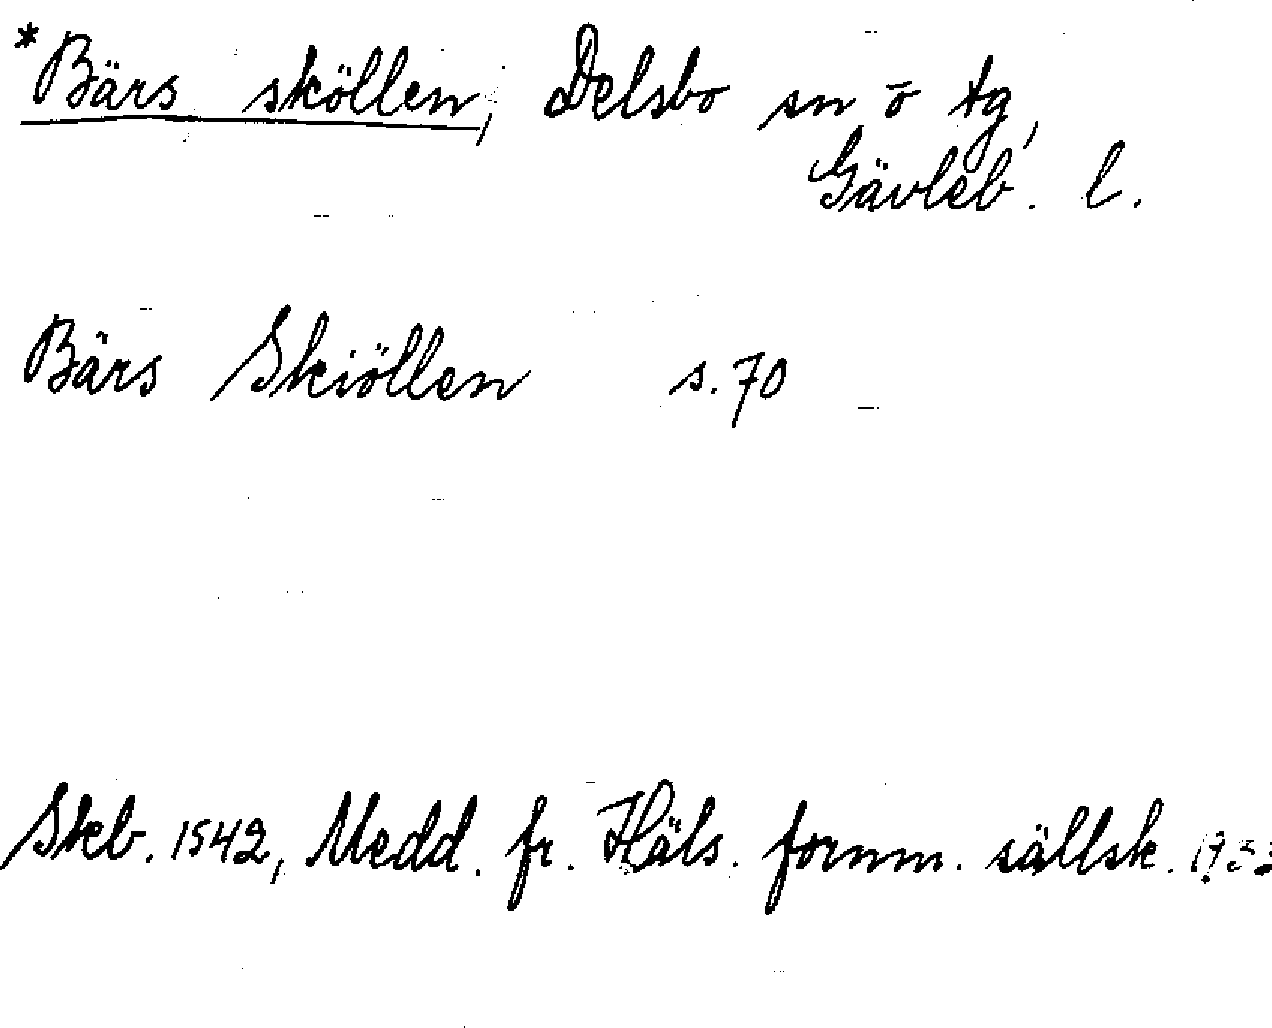 *Bärs sköllen, Delsbo sn o tg,
Gävleb. l.
Bärs Skiöllen s. 70
Skb. 1542, Medd. fr. Häls. fornm. sällsk. 1933